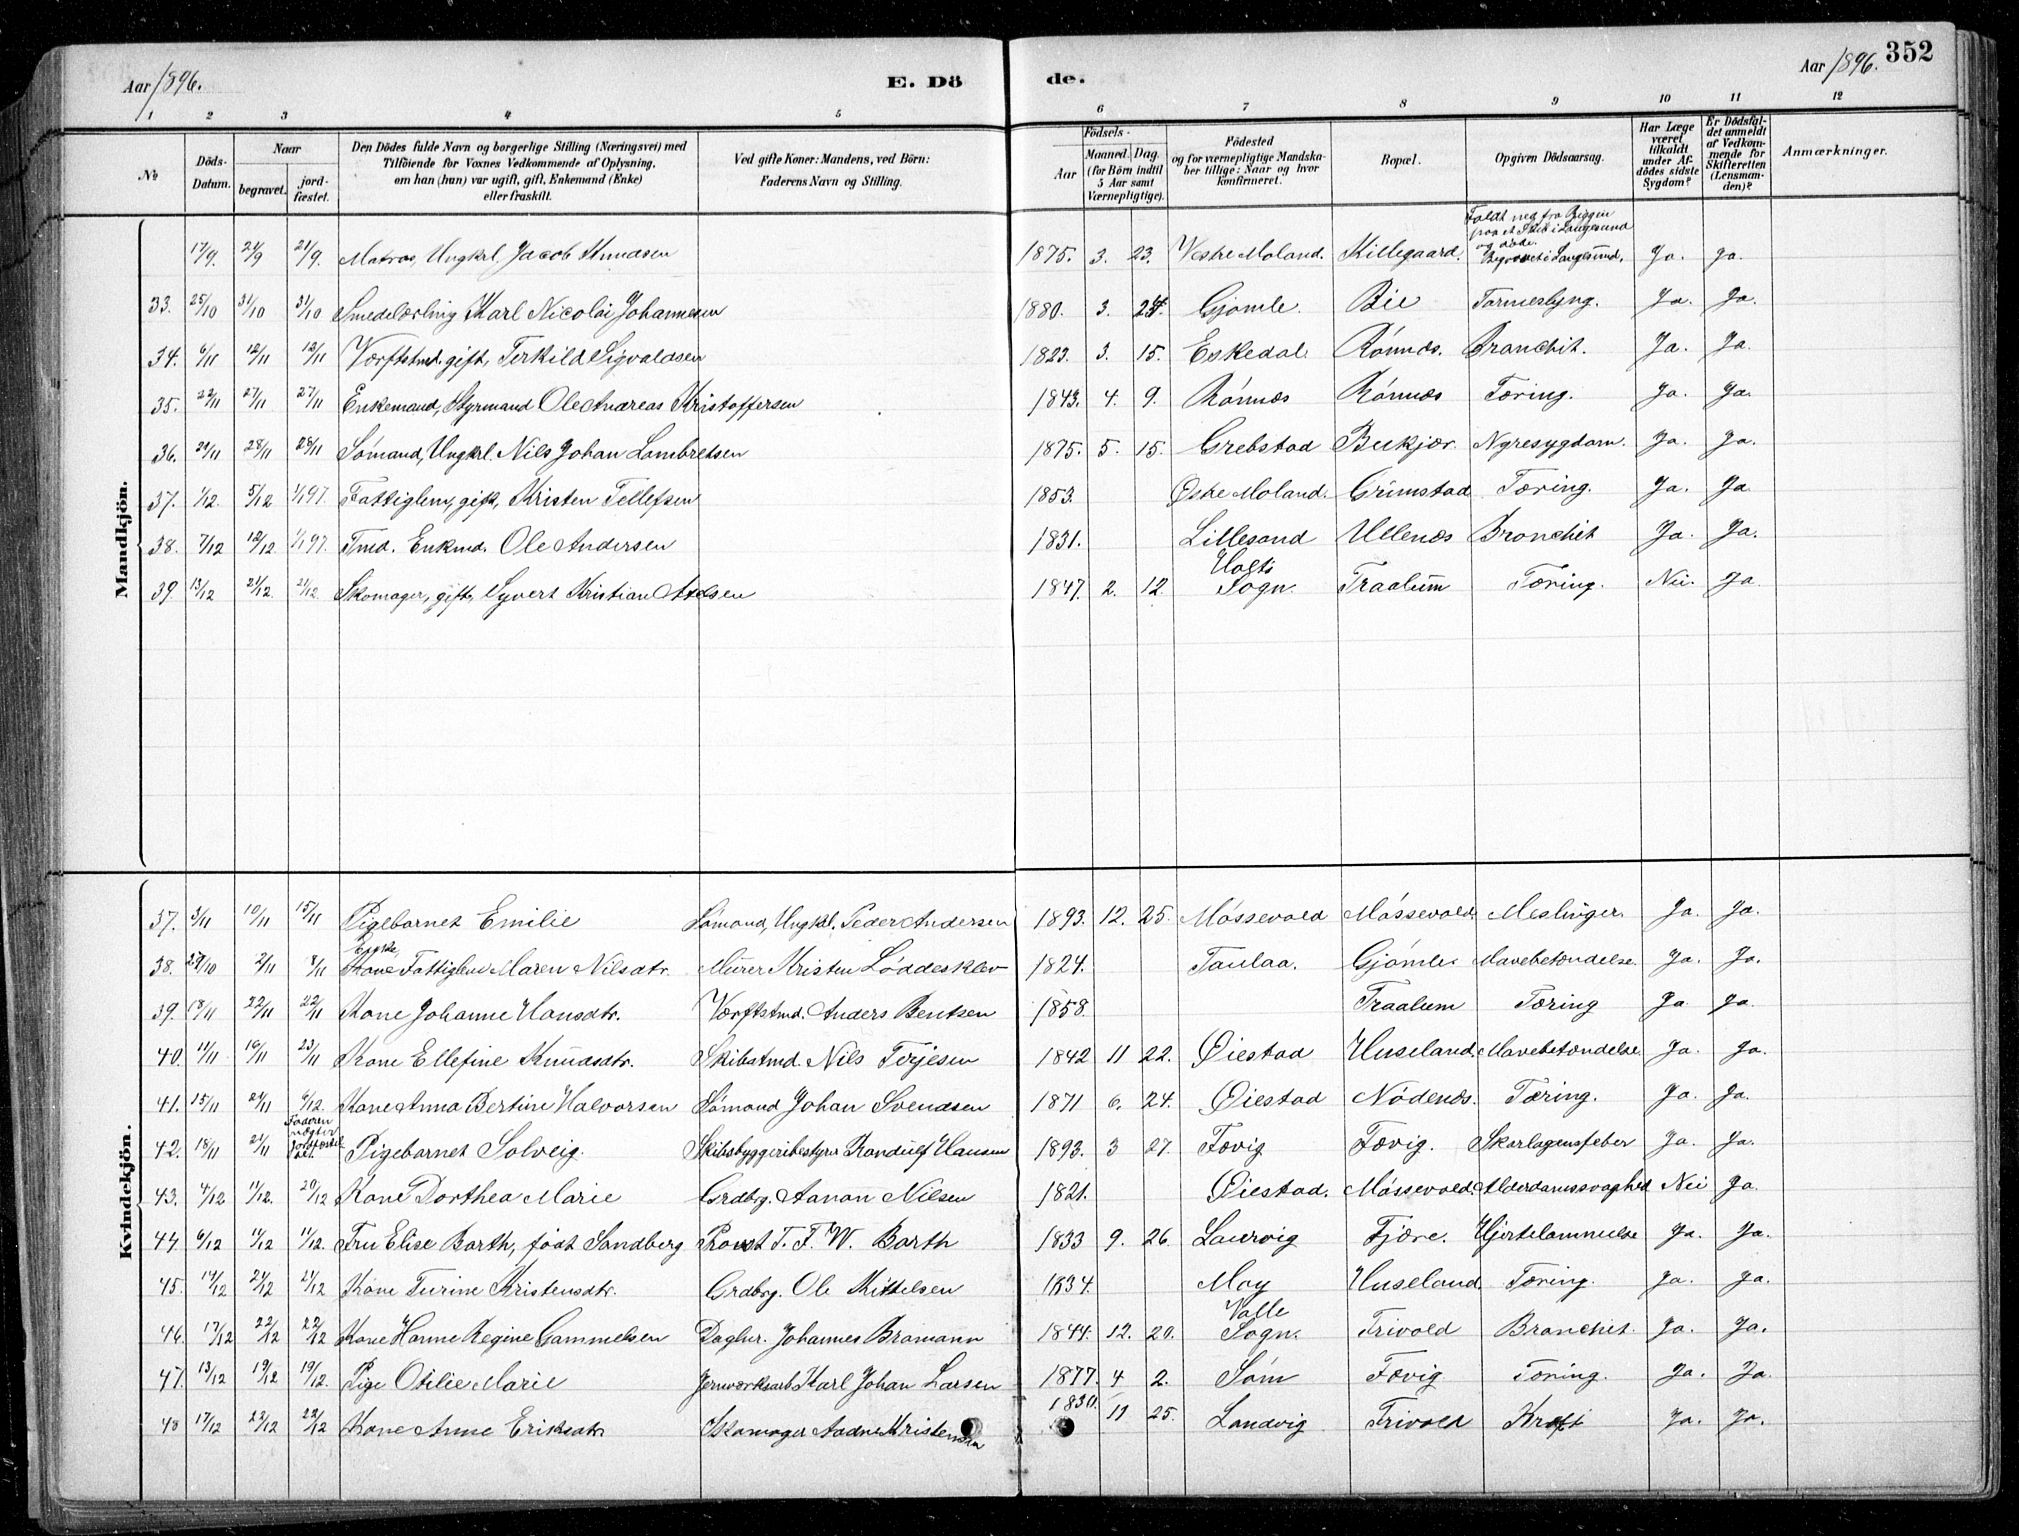 Aar 1896. E. Dö de. Aar 1896. 352
1 2 3 4 5 6 7 8 9 10 11 12
No Döds-Datum. Naar begravet. jordfæstet. Den Dödes fulde Navn og borgerlige Stilling (Næringsvei) med Tilföiende for Voxnes Vedkommende af Oplysning, om han (hun) var ugift, gift, Enkemand (Enke) eller fraskilt. Ved gifte Koner: Mandens, ved Börn: Faderens Navn og Stilling. Födsels- Aar Maaned. Dag. (for Börn indtil 5 Aar samt Værnepligtige). Födested og for værnepligtige Mandskaber tillige: Naar og hvor konfirmeret. Bopæl. Opgiven Dödsaarsag. Har Læge været tilkaldt under Afdödes sidste Sygdom? Er Dödsfaldet anmeldt af Vedkommende for Skifteretten (Lensmanden)? Anmærkninger.
Mandkjön.
17/9. 21/9 21/9. Matros, Ungkrl. Jacob Knudsen 1875. 3. 23. Vestre Moland. Killegaard. Faldt ned fra Riggen paa et Skib i Langesund og døde. Begravet i Langesund. Ja. Ja.
33. 25/10 31/10 31/10 Smedelærling Karl Nicolai Johannesen 1880. 3. 24. Gjømle. Bie Tarmeslyng. Ja. Ja.
34. 6/11 12/11 12/11 Værftstmd. gift, Terkild Sigvaldsen 1823. 3. 15. Eskedal Rønnes. Bronchit. Ja. Ja.
35. 22/11 27/11 27/11 Enkemand, Styrmand Ole Andreas Kristoffersen 1843. 4. 9. Rønnes Rønnes Tæring. Ja. Ja.
36. 21/11 28/11 28/11 Sømand, Ungkrl. Nils Johan Lambretsen 1875. 5. 15. Grebstad Bukjær. Nyresygdom. Ja. Ja.
37. 1/12. 5/12 1/1 97. Fattiglem, gift, Kristen Tellefsen 1853. Østre Moland. Grimstad Tæring. Ja. Ja
38. 7/12 12/12. 1/1 97. Tmd. Enkmd. Ole Andersen 1831. Lillesand Ullenes Bronchit Ja. Ja.
39. 13/12 21/12. 21/12. Skomager, gift, Syvert Kristian Axelsen 1847. 2. 12. Holts Sogn. Traalum Tæring. Nei. Ja.
Kvindekjön.
37. 3/11 10/11 15/11 Pigebarnet Emilie Sømand, Ungkl. Peder Andersen 1893. 12. 25. Møssevold Møssevold. Meslinger. Ja. Ja.
38. 29/10 2/11 8/11 Kone Fattiglem Maren Nilsdtr. Murer Kristen Løddesklev 1824. Taulaa. Gjømle Mavebetændelse. Ja. Ja.
39. 18/11 22/11 22/11 Kone Johanne Hansdtr. Værftstmd. Anders Bentsen 1858. Traalum Tæring Ja Ja.
40. 11/11. 16/11 23/11 Kone Ellefine Knudsdtr. Skibstmd. Nils Terjesen 1842 11 22. Øiestad Huseland. Mavebetændelse. Ja. Ja.
41. 15/11 21/11 6/12. Kone Anna Bertine Halvorsen Sømand Johan Svendsen 1871 6. 24. Øiestad Nødenes. Tæring. Ja. Ja.
42. 18/11 21/11 Faderen nægter Jordfæstelse. Pigebarnet Solveig. Skibsbyggeribestyrer Randulf Hansen 1893. 3 27. Fævig Fævig. Skarlagensfeber Ja. Ja.
43. 4/12 11/12. 20/12 Kone Dorthea Marie Grdbrg. Aanon Nilsen 1821. Øiestad. Møssevold. Alderdomssvaghed Nei Ja.
44. 6/12 11/12 11/12. Fru Elise Barth, født Sandberg Provst T. F. W. Barth 1833 9. 26. Laurvig Fjære. Hjertelammelse Ja. Ja.
45. 14/12 21/12 21/12 Kone Turine Kristensdtr. Grdbrg. Ole Kittelsen 1834. Moy Huseland. Tæring. Ja. Ja.
46. 17/12 22/12 22/12 Kone Hanne Regine Gammelsen Daglnr. Johannes Bramann 1844. 12. 20. Valle Sogn. Trivold Bronchit. Ja. Ja.
47. 13/12 19/12 19/12. Pige Otilie Marie Jernværksarb. Karl Johan Larsen 1877. 4 2. Søm Fævig Tæring. Ja. Ja.
48 17/12 22/12 22/12 Kone Anne Eriksdtr Skomager Aadne Kristensen 1830. 11 25. Landvig Trivold Kræft Ja. Ja.